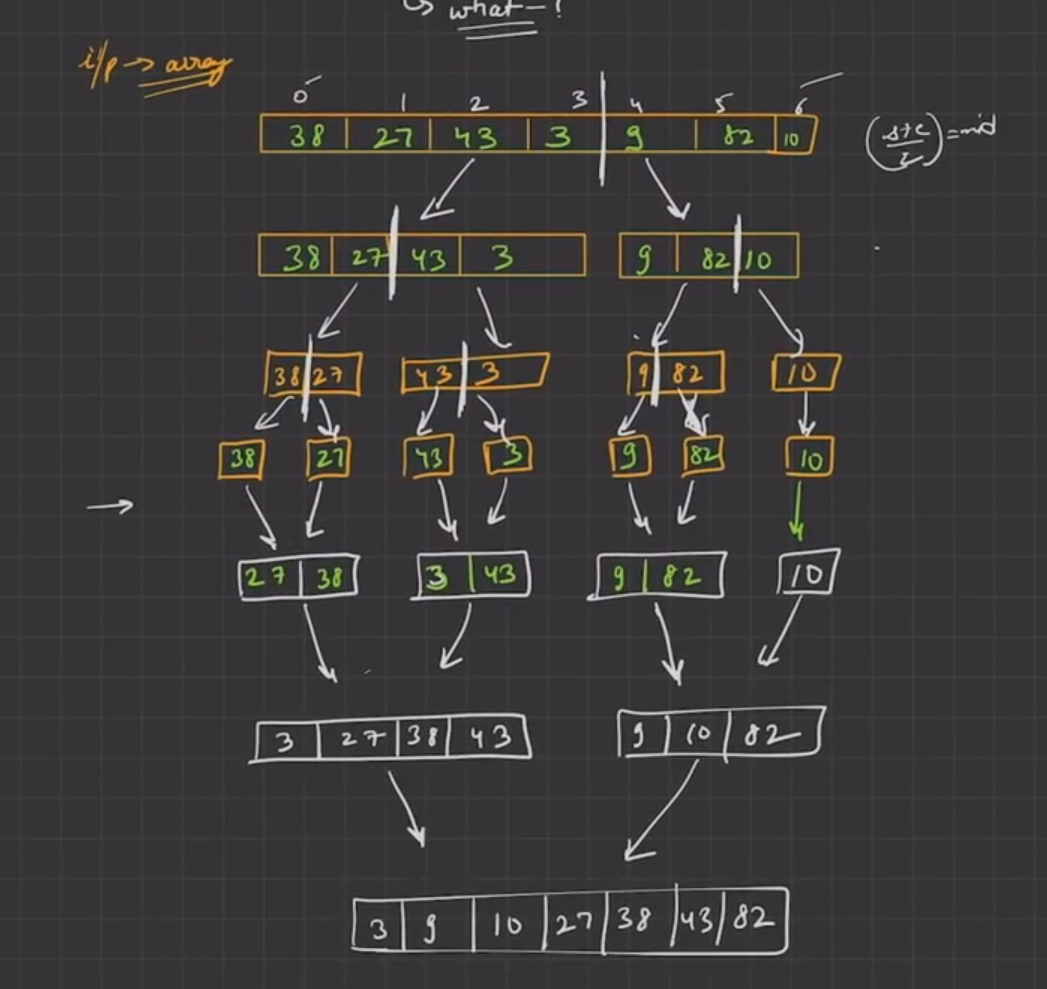 ↳ what - ?
i/p → array
0 1 2 3 4 5 6
38 27 43 3 9 82 10
(s+e/2) = mid
38 27 43 3 9 82 10
38 27 43 3 9 82 10
38 27 43 3 9 82 10
→
27 38 3 43 9 82 10
3 27 38 43 9 10 82
3 9 10 27 38 43 82